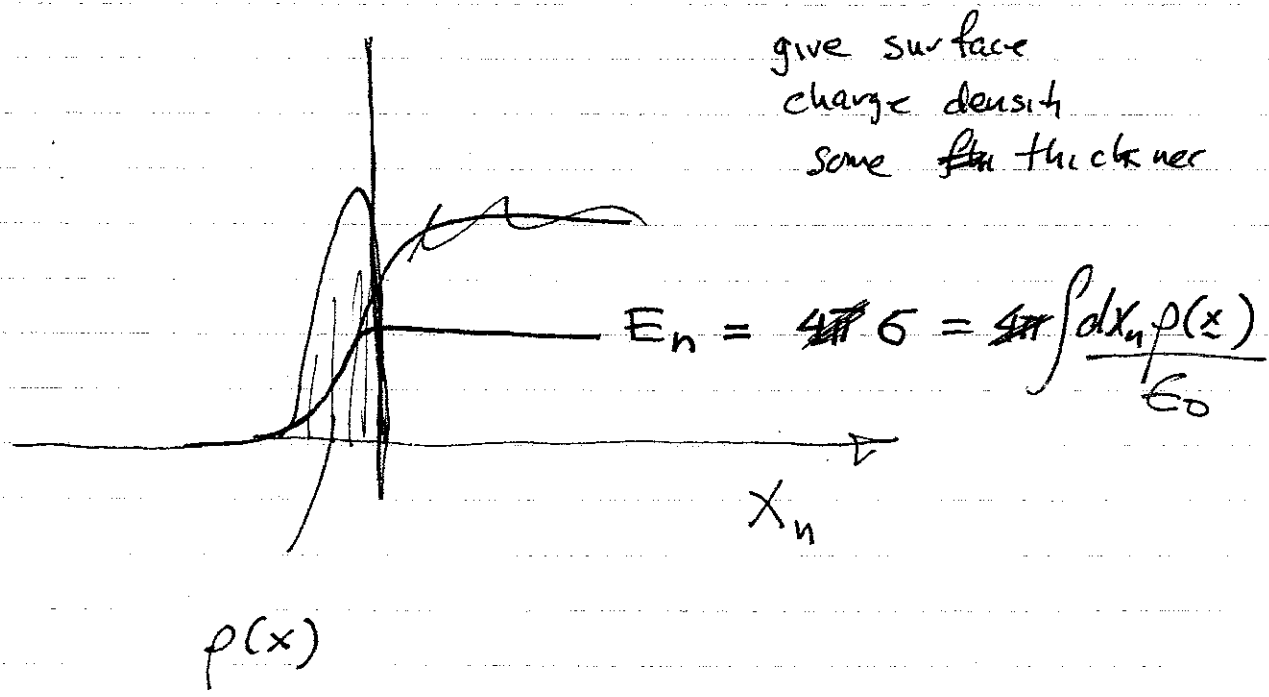 give surface
charge densit
some thickner
E_n = σ = ∫dx_n ρ(x)
ε_0
X_n
ρ(x)